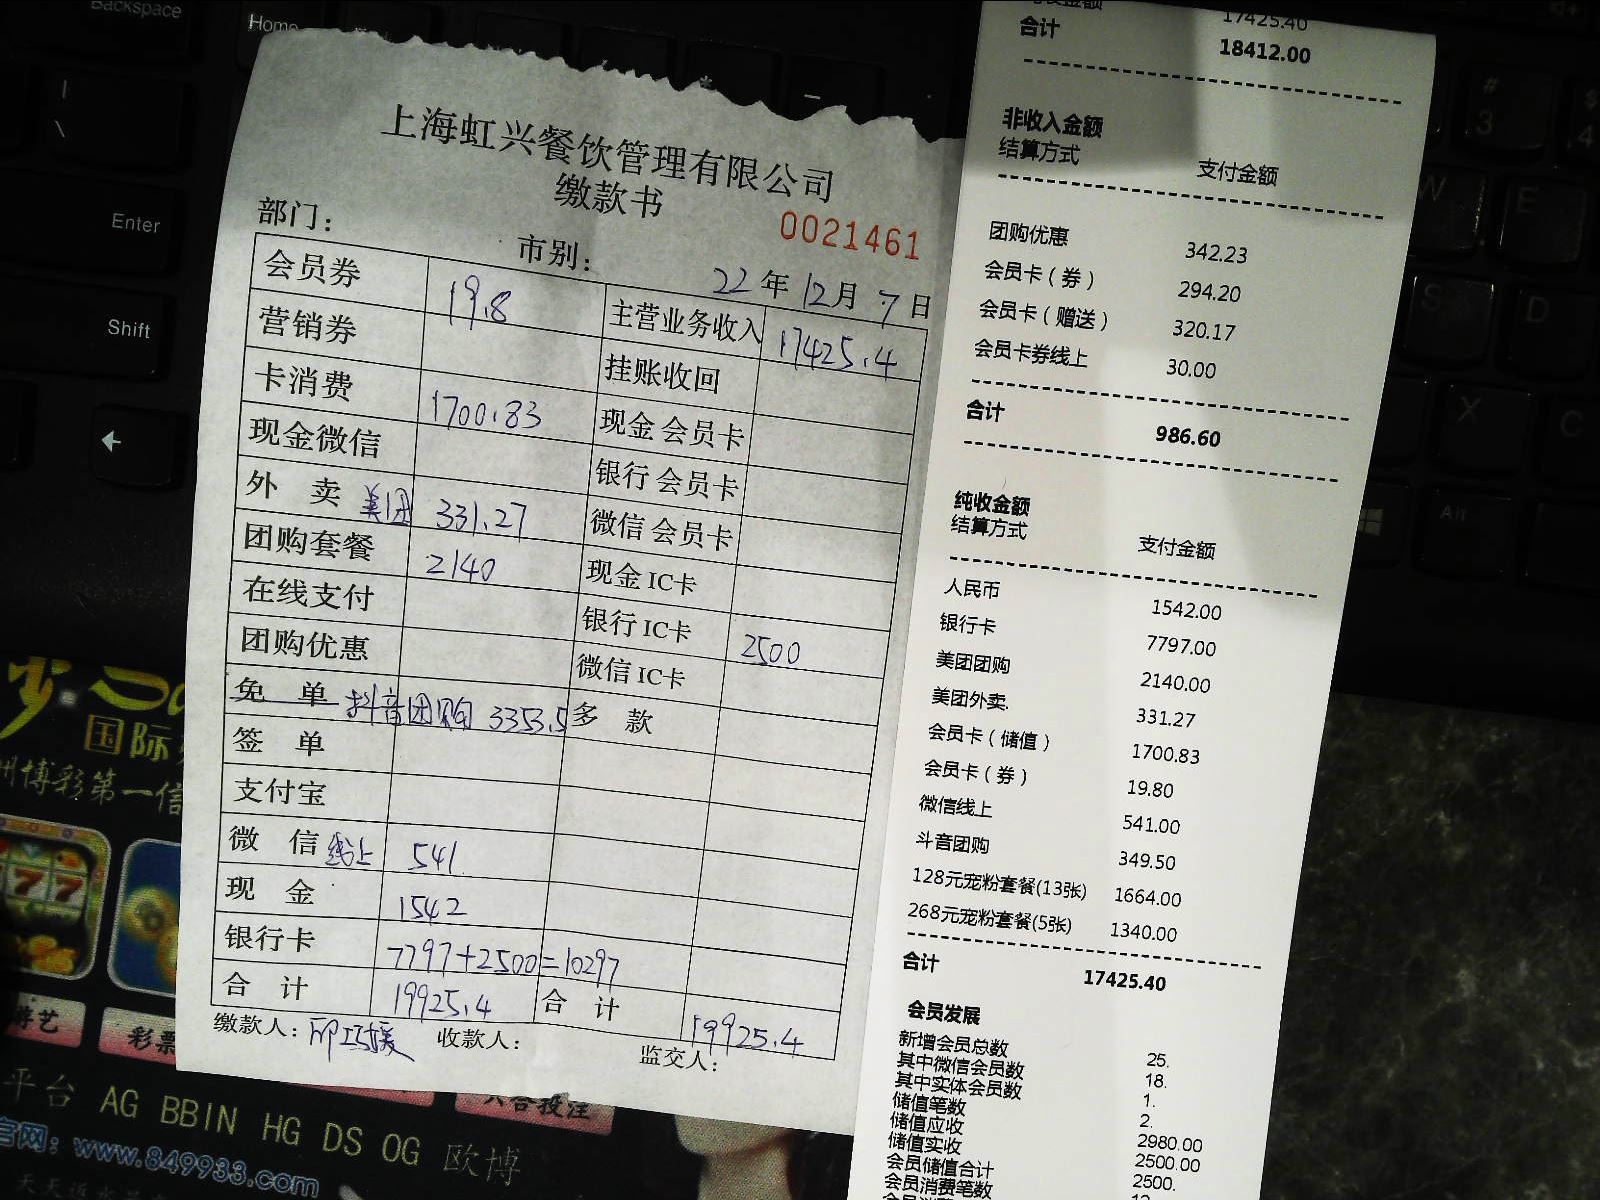 Backspace
Home
Enter
Shift
上海虹兴餐饮管理有限公司
缴款书
0021461
部门：
市别：
22 年 12 月 7 日
会员券 19.8 主营业务收入 17425.4
营销券 挂账收回
卡消费 1700.83 现金 会员卡
现金微信 银行 会员卡
外 卖 美团 331.27 微信 会员卡
团购套餐 2140 现金 IC卡
在线支付 银行 IC卡 2500
团购优惠 微信 IC卡
免 单 抖音团购 3353.5 多 款
签 单
支付宝
微 信 线上 541
现 金 1542
银行卡 7797+2500=10297
合 计 19925.4 合 计 19925.4
缴款人： 收款人： 监交人：
17425.40
合计 18412.00
非收入金额
结算方式 支付金额
团购优惠 342.23
会员卡（券） 294.20
会员卡（赠送） 320.17
会员卡券线上 30.00
合计 986.60
纯收金额
结算方式 支付金额
人民币 1542.00
银行卡 7797.00
美团团购 2140.00
美团外卖. 331.27
会员卡（储值） 1700.83
会员卡（券） 19.80
微信线上 541.00
斗音团购 349.50
128元宠粉套餐(13张) 1664.00
268元宠粉套餐(5张) 1340.00
合计 17425.40
会员发展
新增会员总数 25.
其中微信会员数 18.
其中实体会员数 1.
储值笔数 2.
储值应收 2980.00
储值实收 2500.00
会员储值合计 2500.
会员消费笔数
国际
州博彩第一信
彩票
平台 AG BBIN HG DS OG 欧博
官网：www.849933.com
# 3
W
E
S
D
X
C
Alt